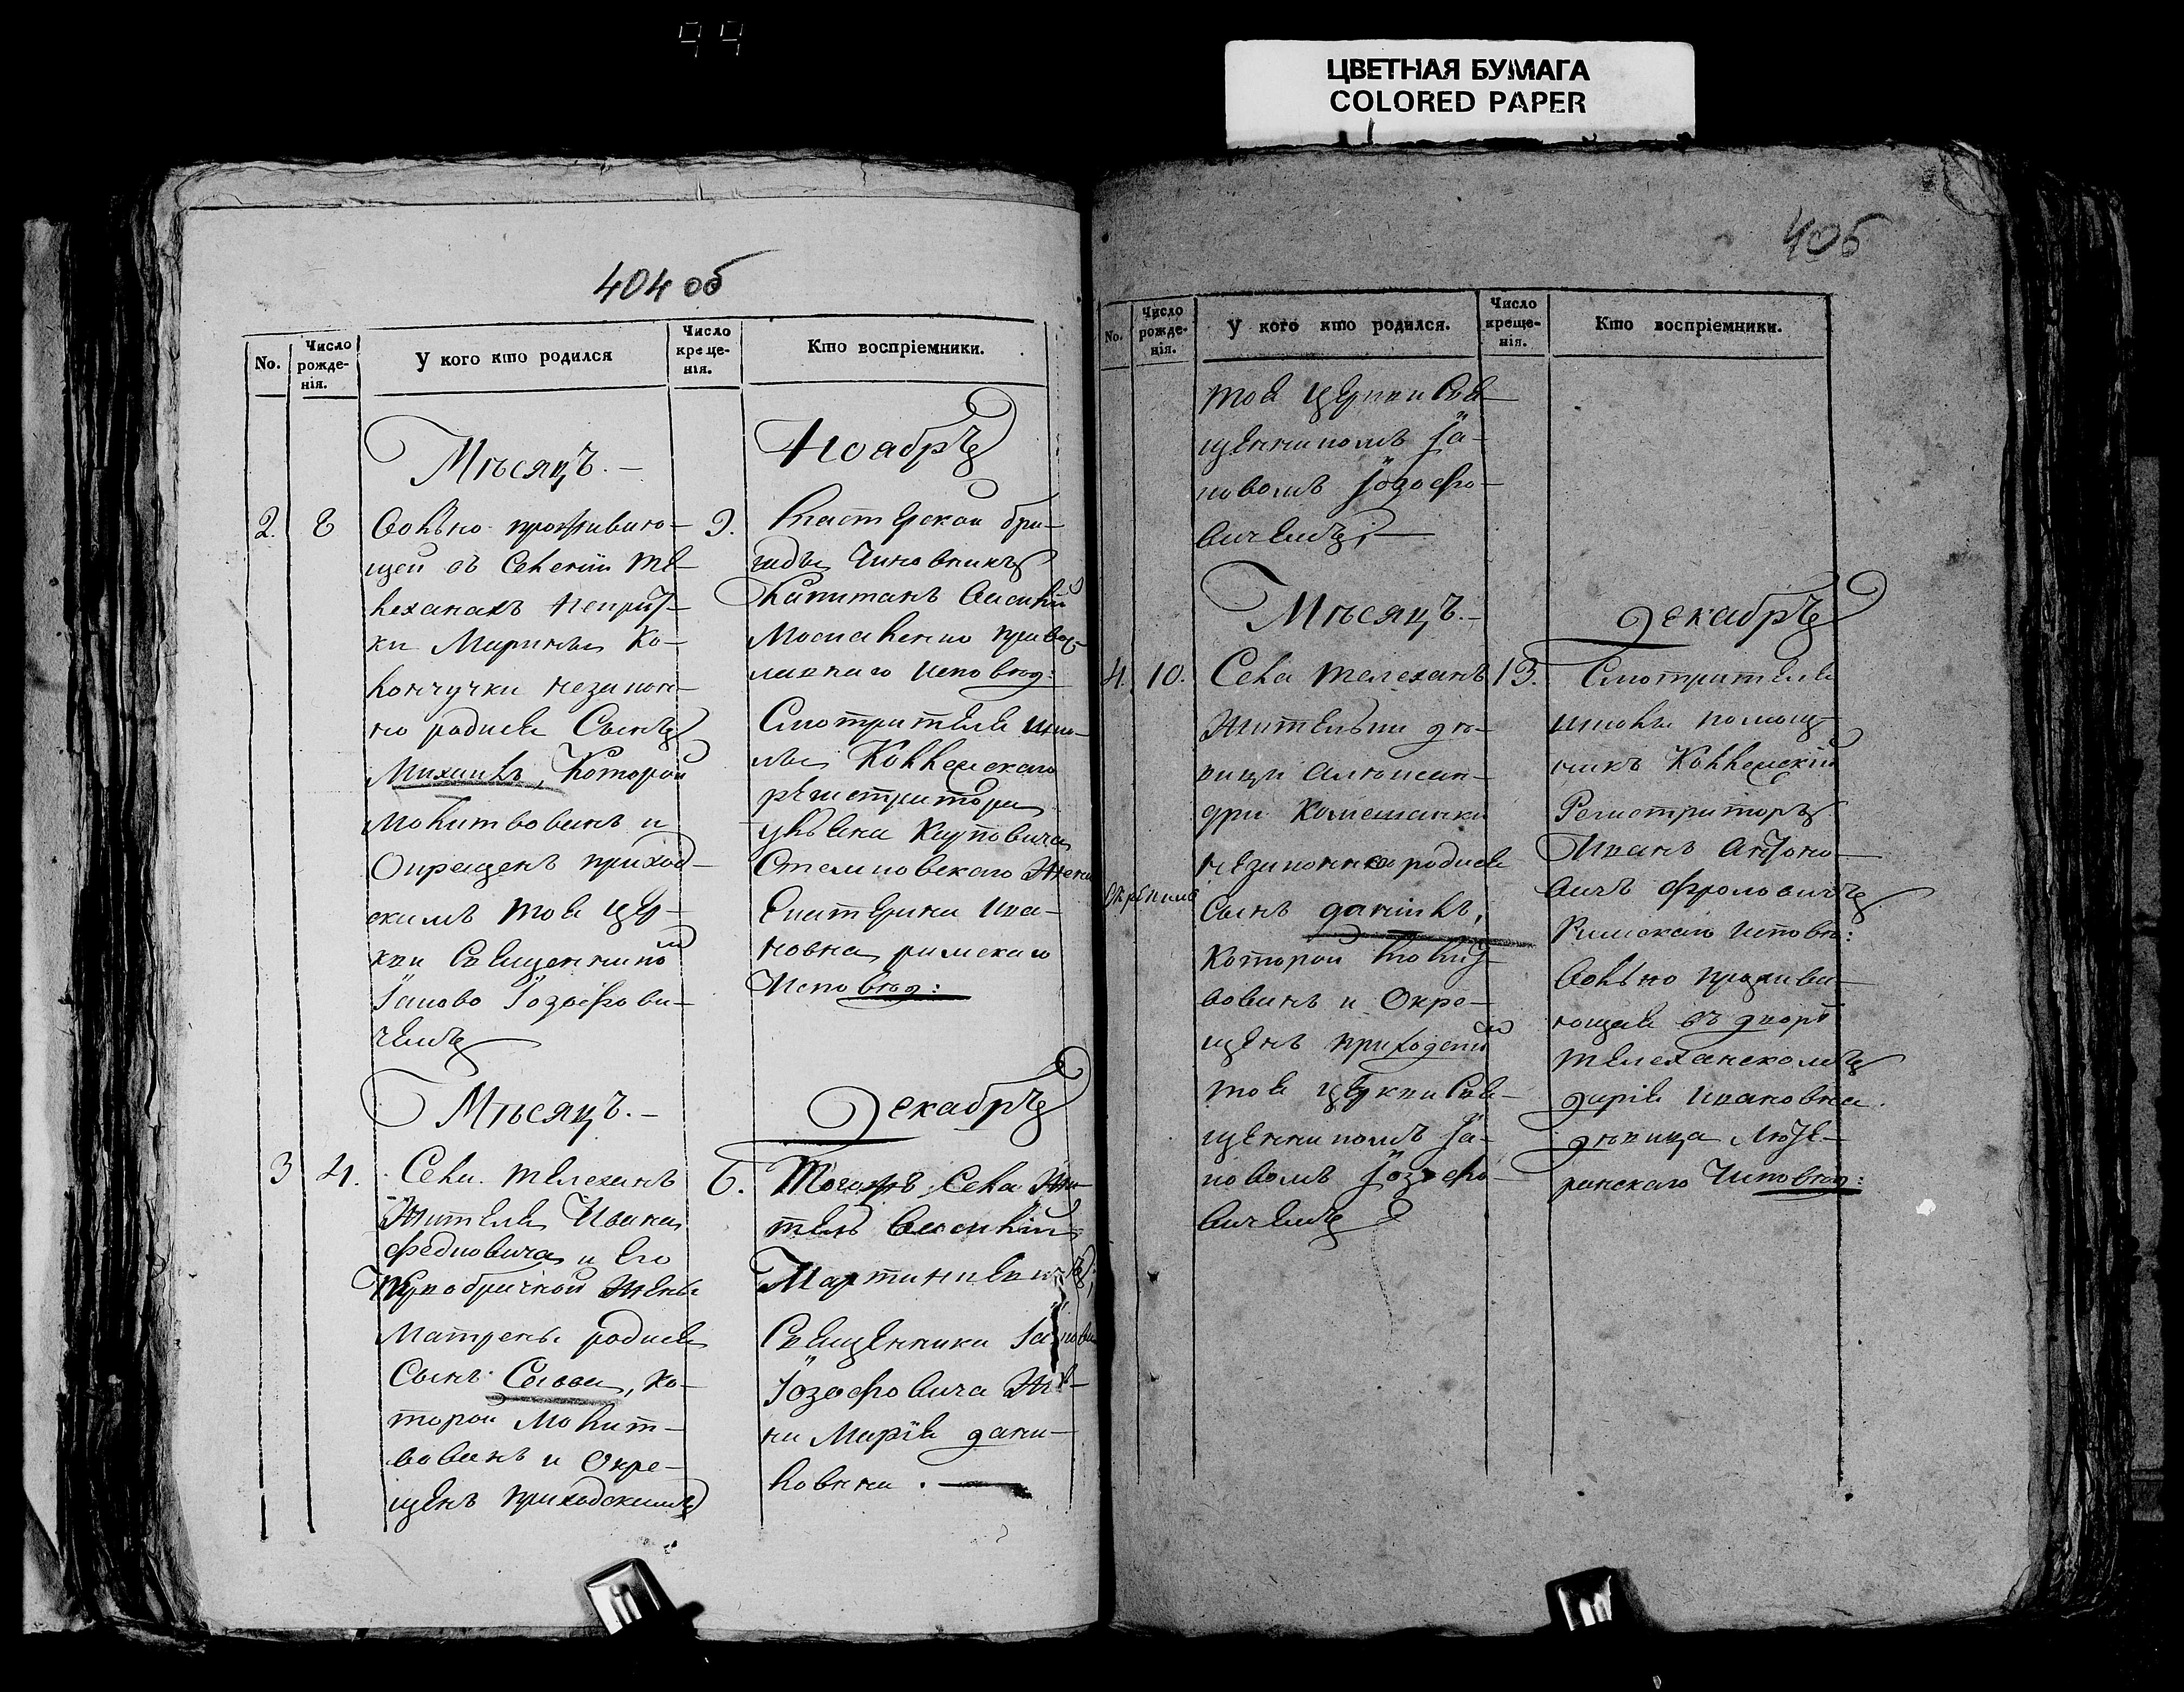 ЦВЕТНАЯ БУМАГА
COLORED PAPER
404 об
No.
Число рожде- нія.
У кого кто родился
Число креще- нія.
Кто воспріемники.
Мѣсяцъ.
Ноябръ
2. 8
Вольно проживаю-
щей въ Селеніи Те-
леханахъ
ки Марины Ко-
лончучки незакон-
но родися Сынъ
Михаилъ, Которой
Молитвованъ и
Окрещенъ приход-
скимъ тоя Цер-
кви Священнико
Іаково Іозефови-
чемъ
9.
бри-
гады Чиновникъ
Капитанъ Василій
Мосиаленко правос-
лавнаго исповѣд:
Смотрителя шко-
лы Коллежскаго
регистратора
Стемповскаго Жена
Екатерина Ива-
новна римскаго
Исповѣд:
Мѣсяцъ.
Декабръ
3 4.
Села Телеханъ
Жителя Ивана
Федковича и Его
Жены
Матрены родися
Сынъ Савва, ко-
торой Молит-
вованъ и Окре-
щенъ приходскимъ
6.
Тогожъ Села Жи-
тель Василій
Мартинкевичъ;
Священника Іакова
Іозефовича Же-
на Марія Дани-
ловна.
405
No.
Число рожде- нія.
У кого кто родился.
Число креще- нія.
Кто воспріемники.
тоя Церкви Свя-
щенникомъ Іа-
ковомъ Іозефо-
вичемъ;
Мѣсяцъ.
Декабръ
4. 10.
Села Телеханъ
Жительки дѣ-
вици Алексан-
дри Комешанки
незаконно родися
Сынъ Даніилъ,
Которой Молит-
вованъ и Окре-
щенъ приходским
тоя Церкви Свя-
щенникомъ Іа-
ковомъ Іозефо-
вичемъ
13.
Смотрителя
школы помощ-
никъ Коллежскій
Регистраторъ
Иванъ Антоно-
вичъ Фроловичъ
Римскаго исповѣ:
Вольно прожива-
ющая въ дворѣ
Телеханскомъ
Дарія Ивановна
Дѣвица Люте-
ранскаго Исповѣд: